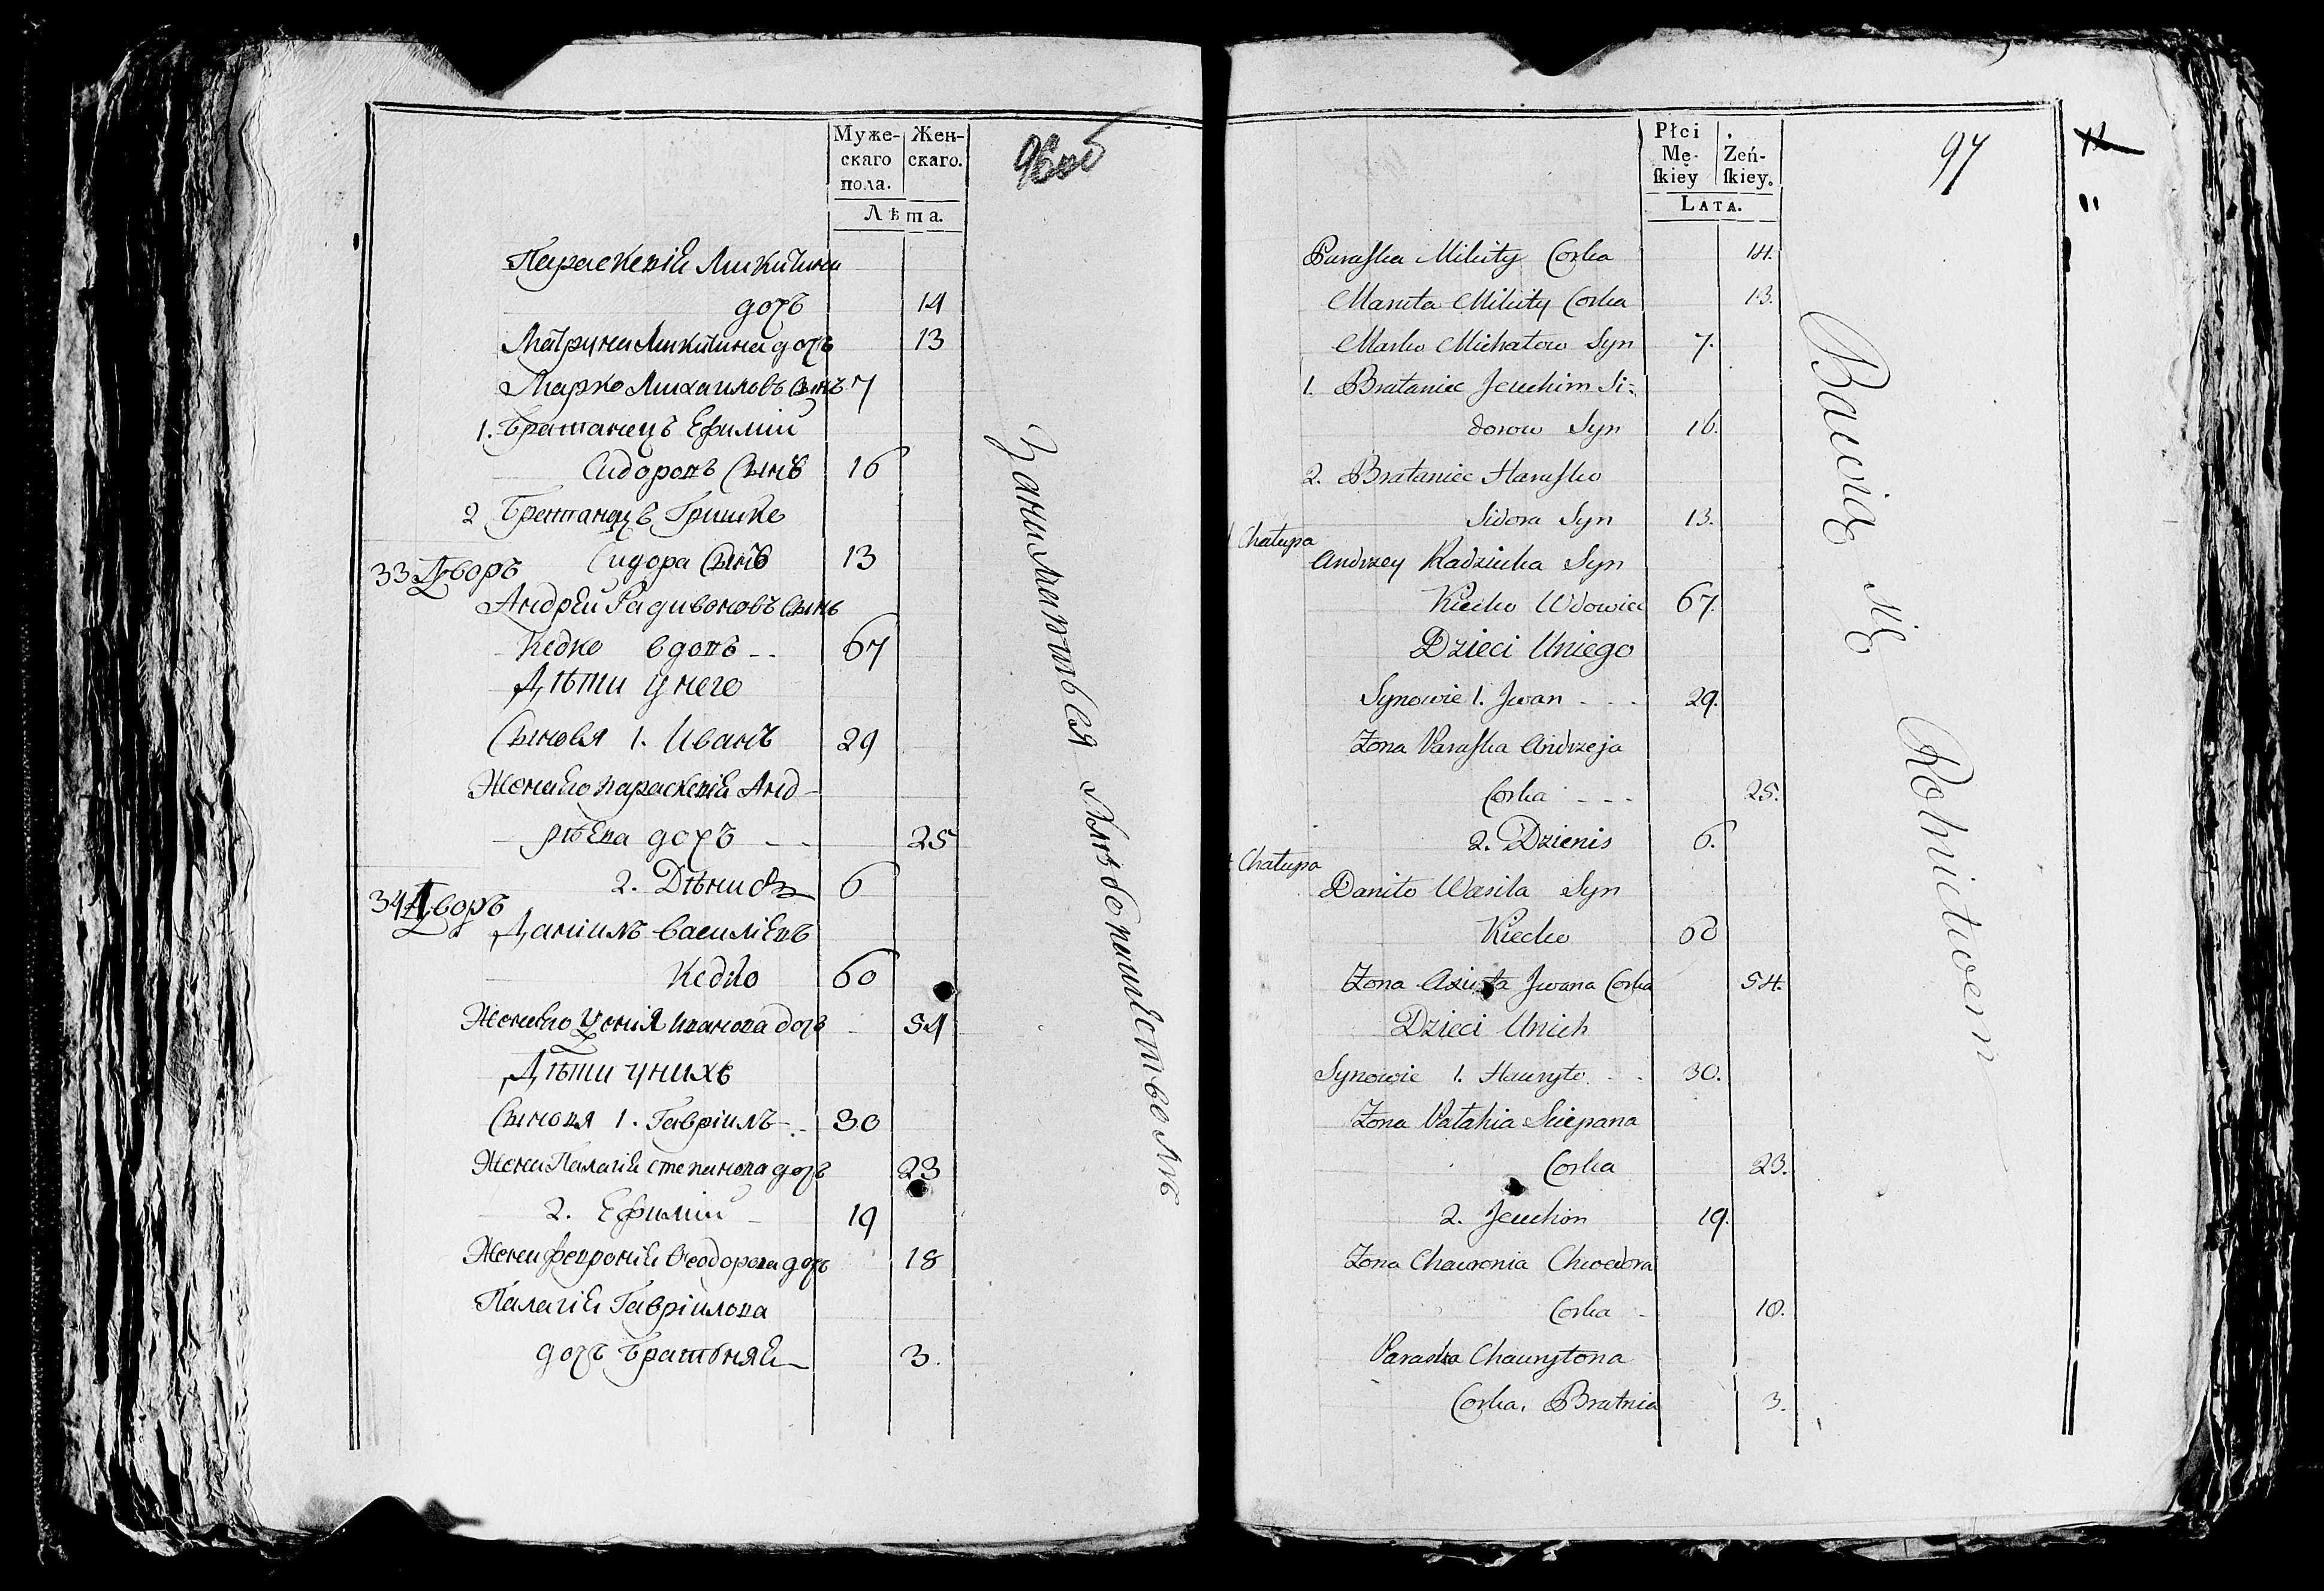 Муже-
скаго
пола.
Жен-
скаго.
Лѣта.
96об
Параскевія Микитина
дочь 14
Матруна Микитина дочь 13
Марко Михаиловъ сынъ 7
1. Братанецъ Ефимій
Сидоровъ Сынъ 16
2 Братанецъ Гришко
Сидора Сынъ 13
33 Дворъ
Андрей Радивоновъ Сынъ
Кедко вдовъ -- 67
Дѣти у него
Сыновя 1. Иванъ 29
Жена Его Параскевія Анд-
рѣева дочь -- 25
2. Дѣнисъ 6
34 Дворъ
Даніилъ Василіевъ
Кедко 60
Жена Его Ѯенія Иванова дочь 54
Дѣти у нихъ
Сыновя 1. Гавріилъ -- 30
Жена Палагія Степанова дочь 23
2. Ефимій - 19
Жена Февронія Ѳеодорова дочь 18
Палагія Гавріилова
дочь Братьняя 3.
Занимаються Хлѣбопашествомъ
Płci
Mę-
ſkiey
Zeń-
ſkiey.
LATA.
97
11
Paraſka Mikity Corka 14.
Maruta Mikity Corka 13.
Marko Michałow Syn 7.
1. Brataniec Jeuchim Si-
dorow Syn 16.
2. Brataniec Haraſko
Sidora Syn 13.
Chałupa
Andrzey Radziuka Syn
Kiecko Wdowiec 67.
Dzieci Uniego
Synowie 1. Jwan - - - 29.
Zona Paraſka Andrzeja
Corka - - - 25.
2. Dzienis 6.
Chałupa
Daniło Wasila Syn
Kiecko 60
Zona Jwana Corka 54.
Dzieci Unich
Synowie 1. Hauryło - - 30.
Zona Pałahia Sciepana
Corka 23.
2. Jeuchim 19.
Zona Chauronia Chwedora
Corka - 18.
Paraska Chauryłona
Corka, Bratnia 3.
Bawią się Rolnictwem